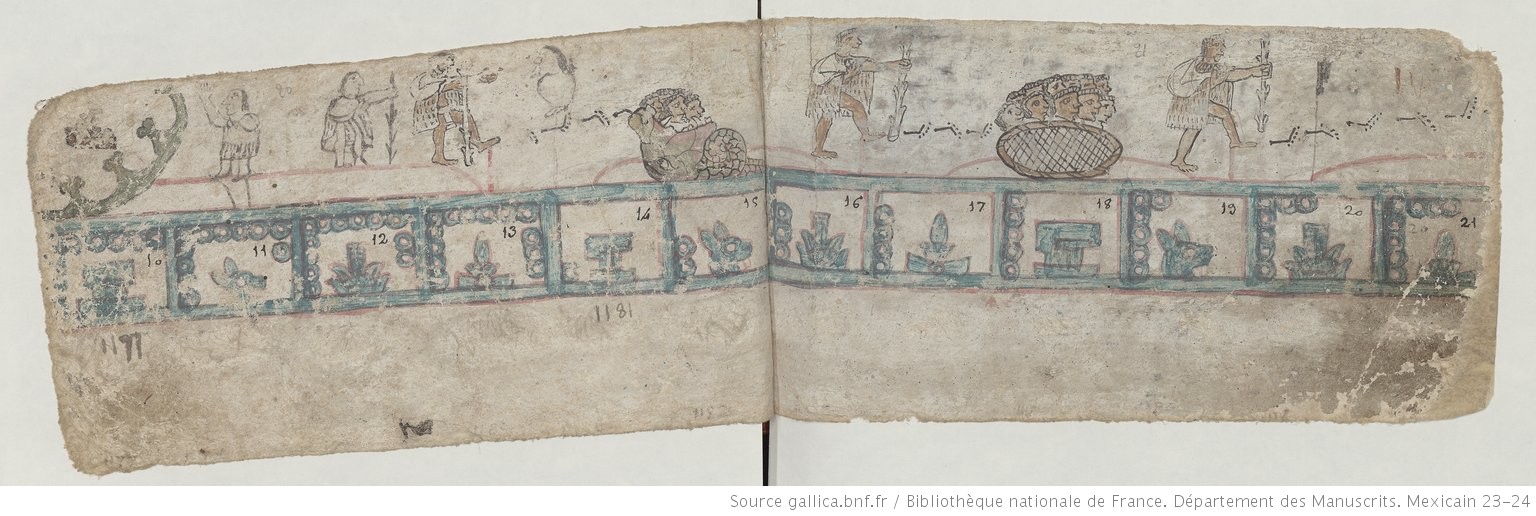 21
10
11
12
13
14
15
16
17
18
19
20
20
21
1197
1181
Source gallica.bnf.fr / Bibliothèque nationale de France. Département des Manuscrits. Mexicain 23-24